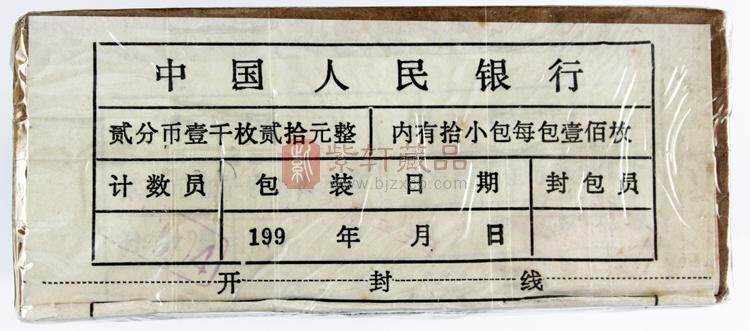 中国人民银行
贰分币壹千枚贰拾元整 内有拾小包每包壹佰枚
紫轩藏品
www.bjzxcp.com
计数员 包装日期 封包员
199 年 月 日
开封线